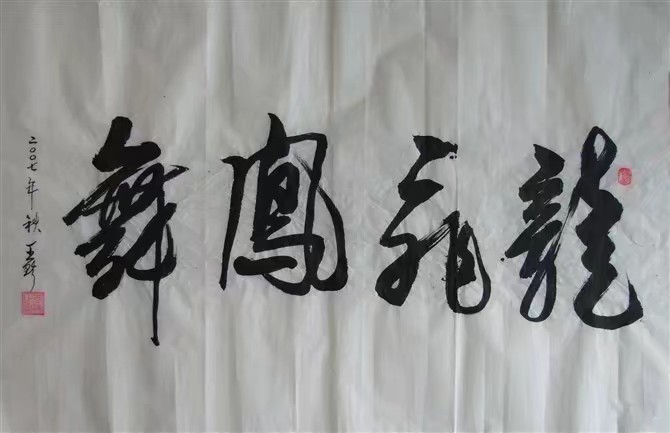 龍飛鳳舞
二〇〇七年秋 王